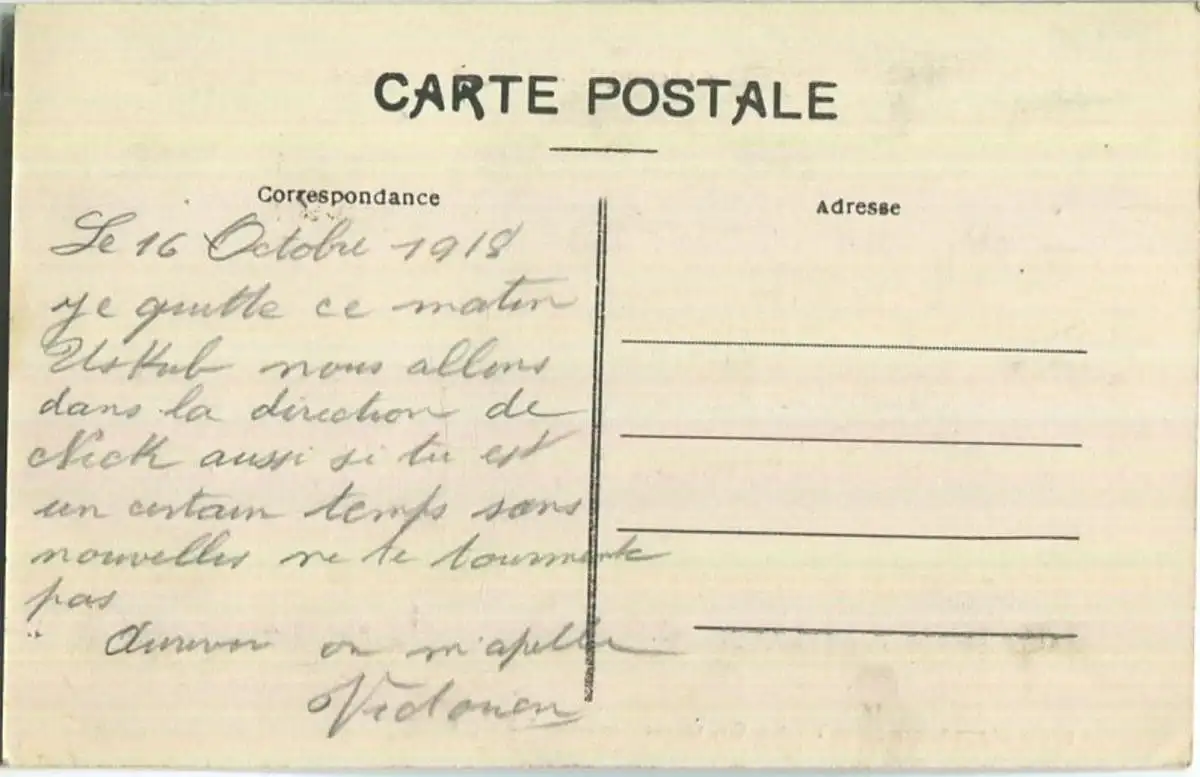 CARTE POSTALE
Correspondance
Adresse
Le 16 Octobre 1918
je quitte ce matin
Uskub nous allons
dans la direction de
Nick aussi si tu est
un certain temps sans
nouvelles ne te tourmente
pas
Aurevoir on m'apelle